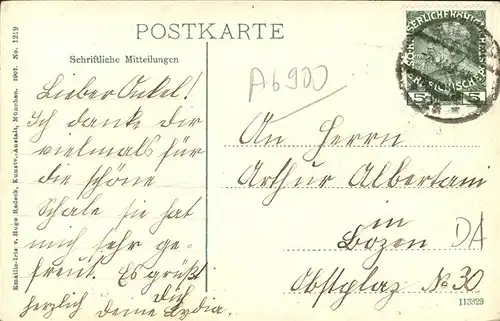 POSTKARTE
Schriftliche Mitteilungen
A6900
Lieber Onkel!
Ich danke dir
vielmals für
die schöne
Schale sie hat
mich sehr ge-
freut. Es grüßt
dich
herzlich deine Lydia.
An Herrn
Arthur Albertani
in
Bozen
DA
Obstplaz No 30
113829
Emaille-Iris v. Hugo Radeck, Kunstv.-Anstalt, München. 1907. No. 1219
5 5